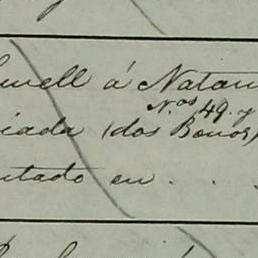 well á Natan
Nos 49 y
iada (dos Bonos)
ntado en . . .